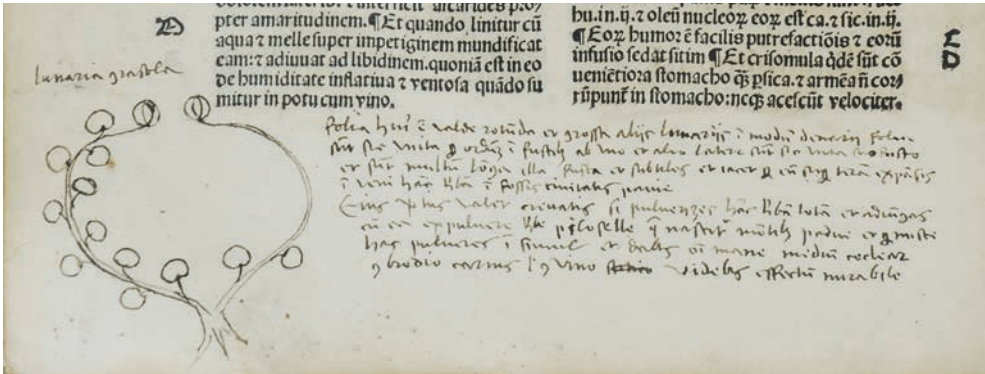 pter amaritudinem. ¶ Et quando linitur cū
aqua ⁊ melle super impetiginem mundificat
eam: ⁊ adiuuat ad libidinem. quoniā est in eo
de humiditate inflatiua ⁊ ventosa quādo su
mitur in potu cum vino.
D
hu. in. ij. ⁊ oleū nucleoꝝ eoꝝ est ca. ⁊ sic. in. ij.
¶ Eoꝝ humor ē facilis putrefactiōis ⁊ eorū
infusio sedat sitim ¶ Et crisomula q̄dē sūt cō
uenientiora stomacho q̄ꝫ psica. ⁊ armēa nō cor
rūpunt in stomacho: neqꝫ acescūt velociter.
E
D
lunaria grasola
folia hui' ē valde rotūda et grossa alijs lunarijs ī modū denarij folia
sūt sic vnita ꝑ ordinē ī fustib ab vno et alio latere
et sūt multū lōga illa fusta et subtiles et iacet ꝑ terā expāsis
ī veni hāc hbā ī fossis ciuitatis padue
Eius valet crepatis si pulueriȝes hāc hbā totā et adiungas
cū ea ex puluere hbe piloselle q̄ nascit' mōtib padue et ꝯmiste
has pulueres ī simul et dabis oī mane mediū coclear
ꝯ brodio carnis l' ꝯ vino videbis effectū mirabile